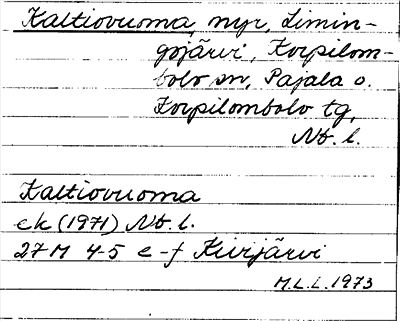 Kaltiovuoma, nyr, Limin-
gojärvi, Korpilom-
bolo sn, Pajala o.
Korpilombolo tg,
Nb. l.
Kaltiovuoma
ek (1971) Nb. l.
27M 4-5 e-f Kivijärvi
M.L.L. 1973